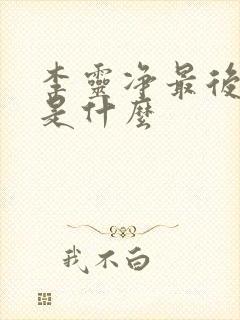 李靈净最後
是什麼
我不白